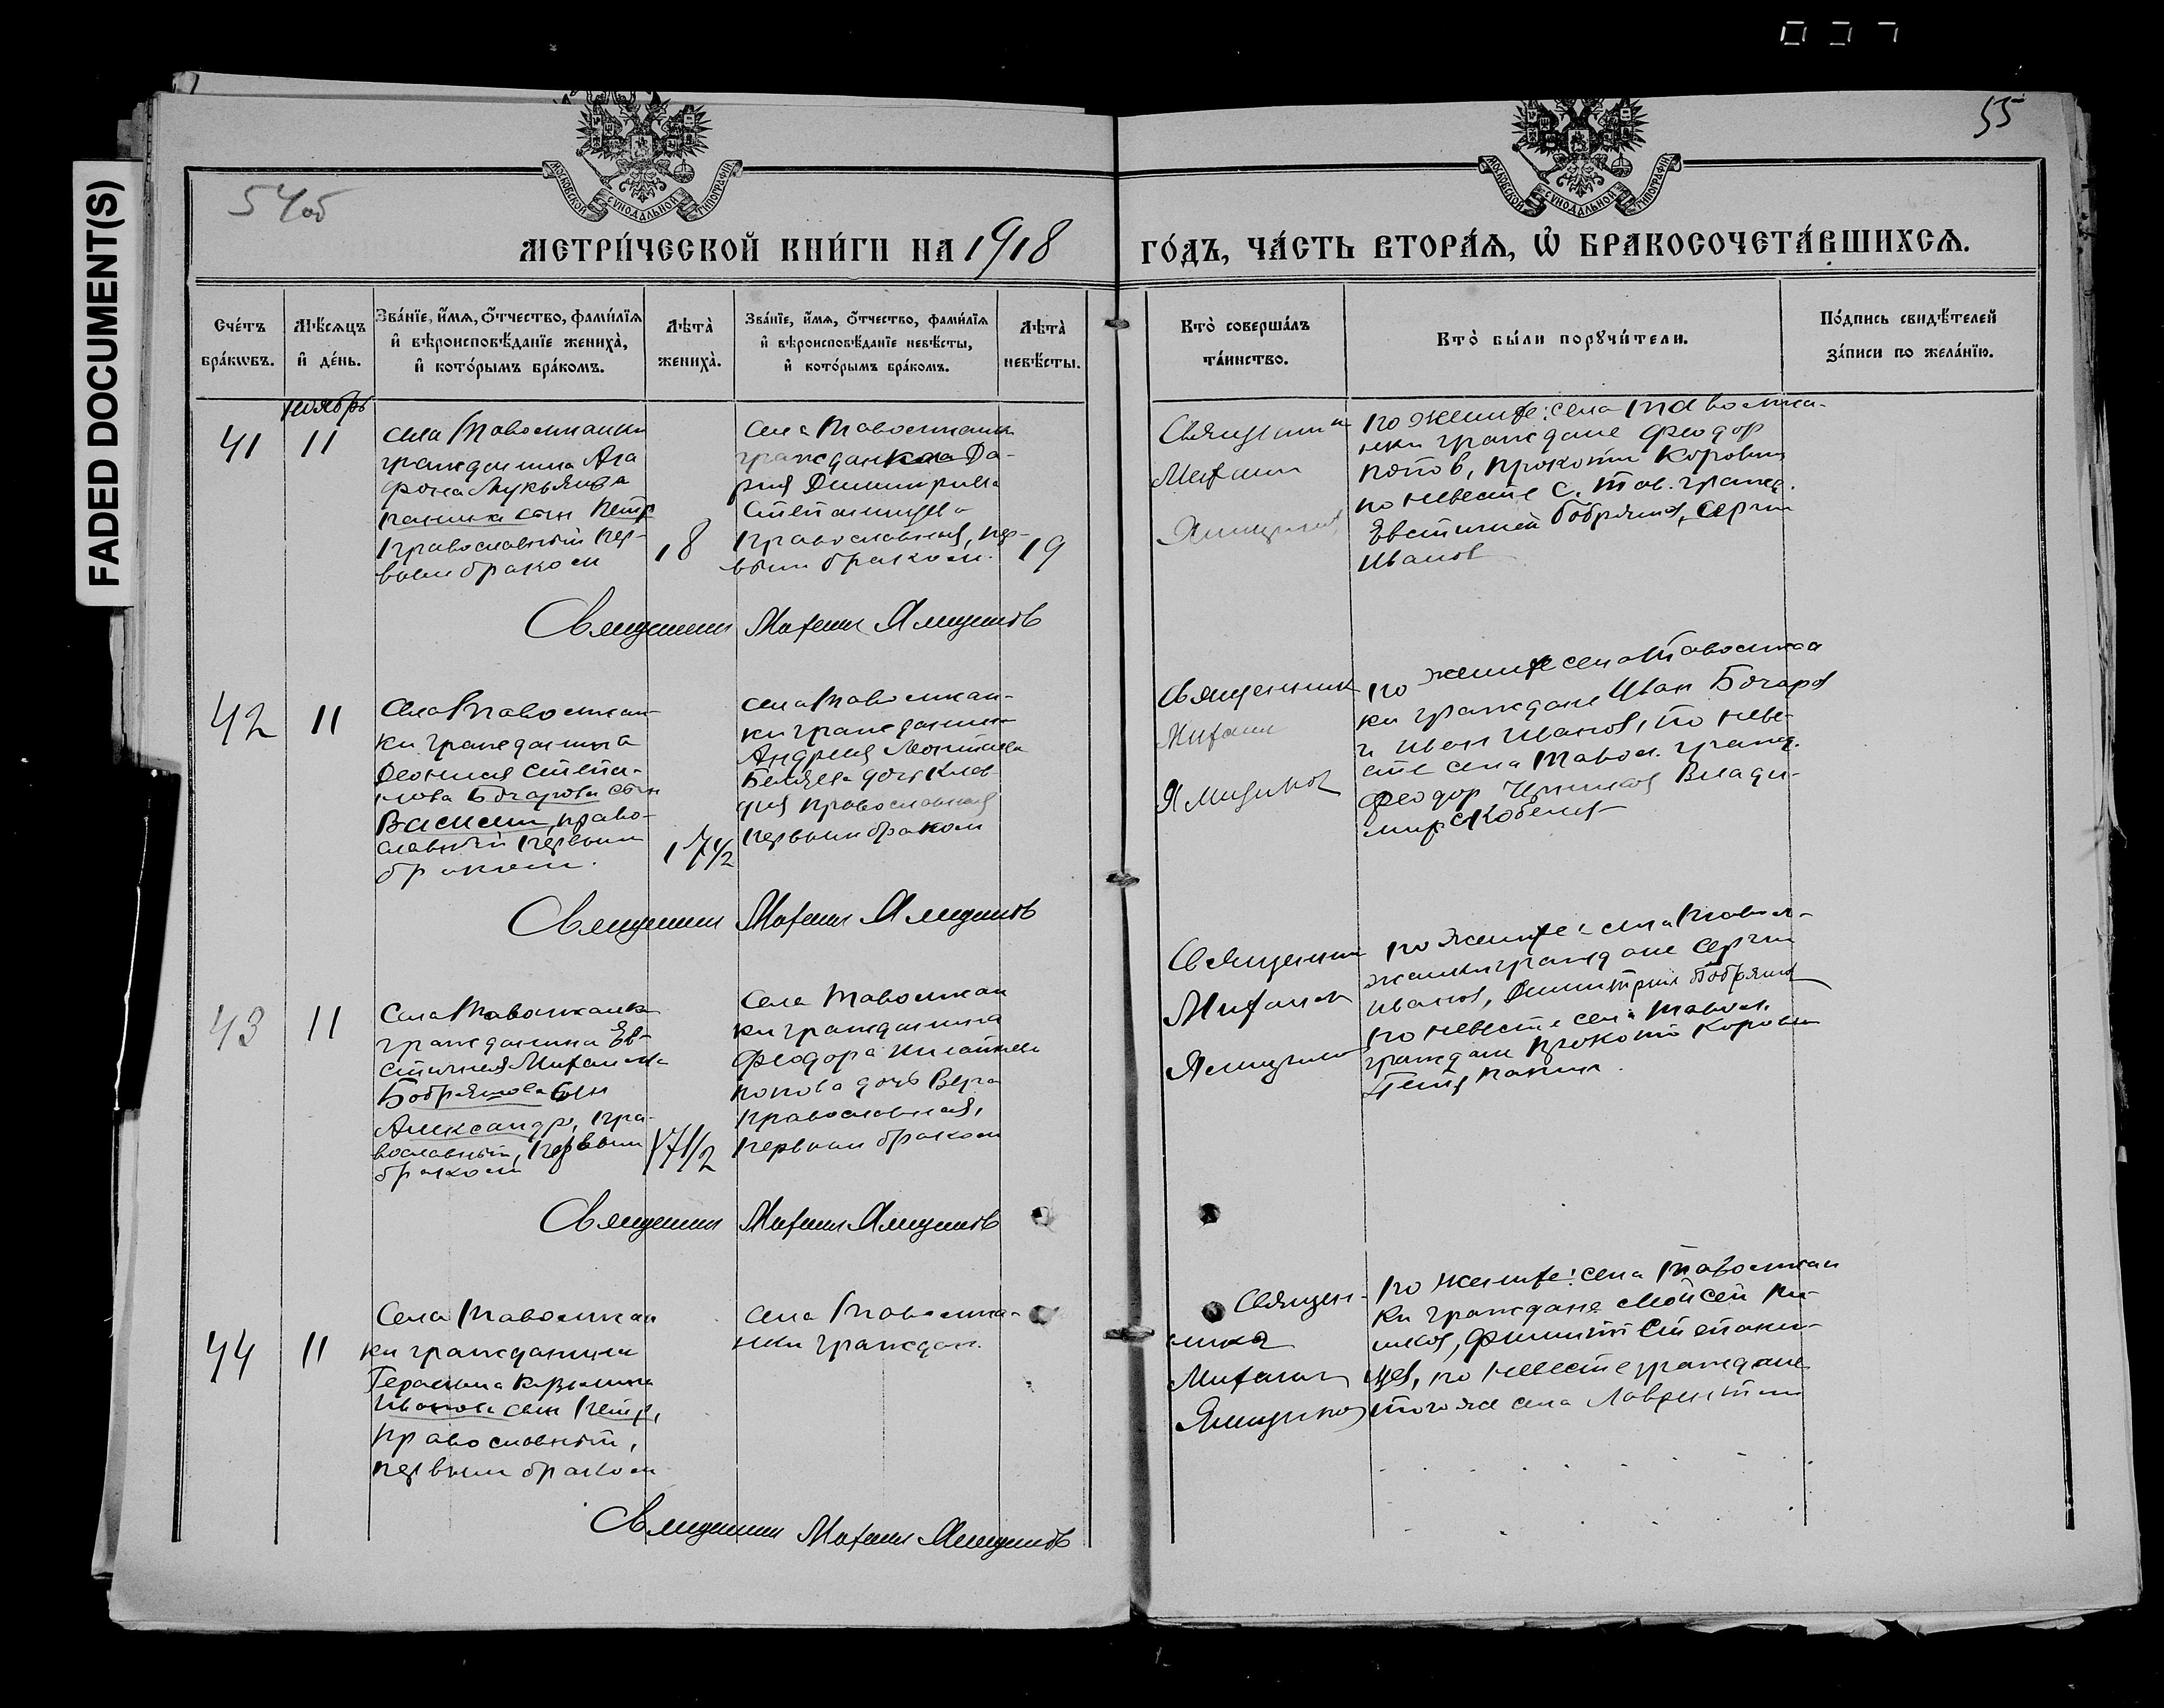 FADED DOCUMENT(S)
54об
55
МОСКОВСКОЙ СѴНОДАЛЬНОЙ ТИПОГРАФІИ
МОСКОВСКОЙ СѴНОДАЛЬНОЙ ТИПОГРАФІИ
МЕТРИ́ЧЕСКОЙ КНИ́ГИ НА 1918
ГО́ДЪ, ЧА́СТЬ ВТОРА́Ѧ, Ѡ҆ БРАКОСОЧЕТА́ВШИХСѦ.
Сче́тъ
бра́кѡвъ.
Мѣ́сяцъ
и҆ де́нь.
Зва́нїе, и҆́мя, ѻ҆́тчество, фами́лїя
и҆ вѣроисповѣ́данїе жениха̀,
и҆ кото́рымъ бра́комъ.
Лѣта̀
жениха̀.
Зва́нїе, и҆́мя, ѻ҆́тчество, фами́лїя
и҆ вѣроисповѣ́данїе невѣ́сты,
и҆ кото́рымъ бра́комъ.
Лѣта̀
невѣ́сты.
Кто̀ соверша́лъ
та́инство.
Кто̀ бы́ли порꙋчи́тели.
По́дпись свидѣ́телей
за́писи по жела́нїю.
ноябрь
41
11
села Таволжанки
гражданина Ага
фона Лукьянова
Панина сын Петр
православный пер-
вым браком
18
села Таволжанки
гражданка Да-
рия Димитриева
Степанищева
православная, пер-
вым браком.
19
Священник
Михаил
Ямщиков
по женихе: села Таволжа-
нки граждане Феодор
Попов, Прокопий Коровин
по невесте с. Тав. гражд.
Евстигней Бобряшов, Сергий
Иванов
Священник Михаил Ямщиков
42
11
Села Таволжан-
ки гражданина
Леонтия Степа-
нова Бочарова сын
Василий, право-
славный первым
браком.
17 1/2
села Таволжан-
ки гражданина
Андрея Леонтьева
Беляева дочь Клав-
дия православная
первым браком
Священник
Михаил
Ямщиков
по женихе села Таволжан
ки граждане Иван Бочаров
и Иван Иванов, по неве-
сте села Тавол. гражд.
Феодор Влади-
мир Кобелев
Священник Михаил Ямщиков
43
11
Села Таволжанки
гражданина Ев-
стигнея Михайлова
Бобряшова сын
Александр, пра-
вославный, первым
браком
17 1/2
Села Таволжан
ки гражданина
Феодора
Попова дочь Вера
православная,
первым браком
Священник
Михаил
Ямщиков
по женихе: села Тавол-
жанки граждане Сергий
Иванов, Димитрий Бобряшов
по невесте села Тавол.
граждане Прокопий Коровин
Петр Панин.
Священник Михаил Ямщиков
44
11
Села Таволжан
ки гражданина
Герасима Кузьмина
Иванова сын Петр,
православный,
первым браком
села Таволжа-
нки граждан.
Священ-
ник
Михаил
Ямщиков
по женихе: села Таволжан
ки граждане Моисей
Филипп Степани-
щев, по невесте граждане
того же села Лаврентий
Священник Михаил Ямщиков